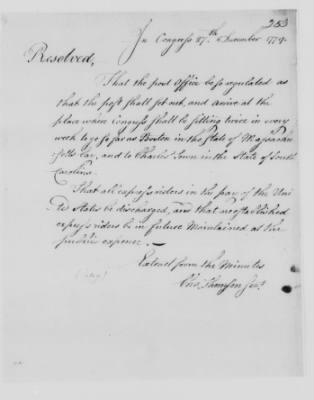 253
In Congress 27th December 1779.
Resolved,
That the post Office be so regulated as
that the post shall set out, and arrive at the
place where Congress shall be sitting twice in every
week to go so far as Boston in the State of Massachu-
setts bay, and to Charles Town in the State of South
Carolina.
That all express riders in the pay of the Uni-
ted States be discharged, and that no established
express riders be in future maintained at the
public expence.
Extract from the Minutes
Chas. Thomson Secy.